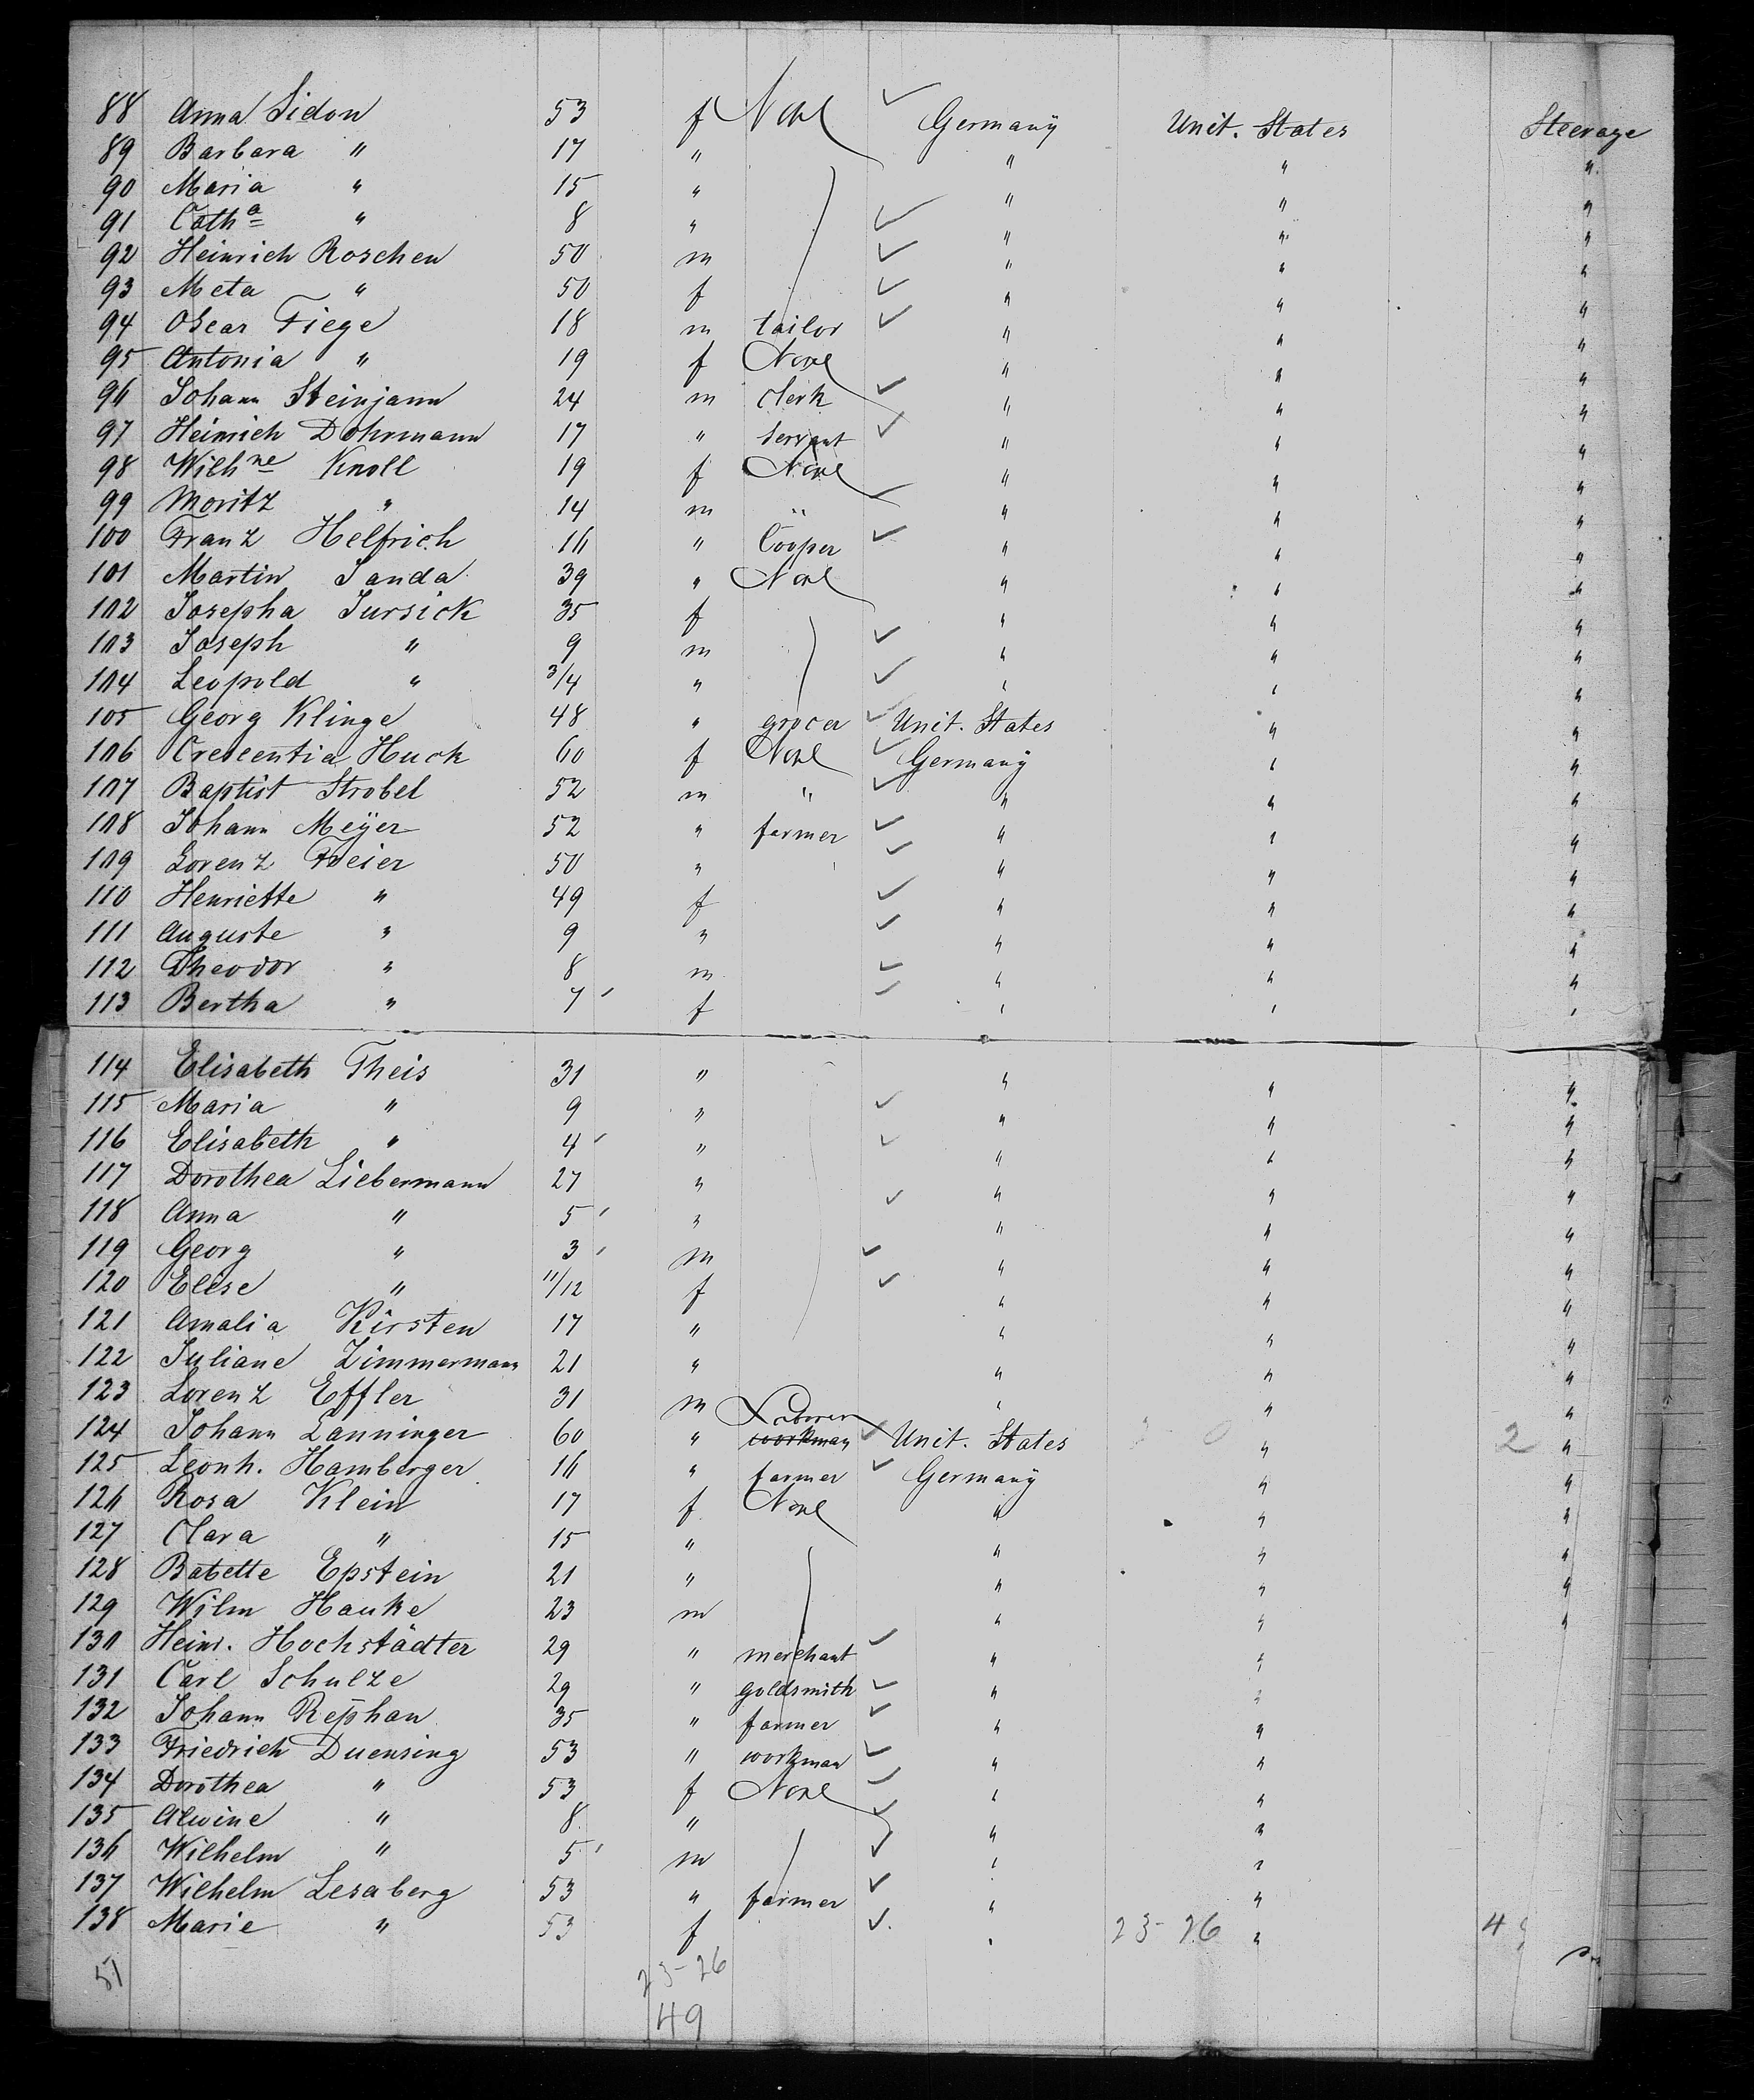 88 Anna Sidon 53 f None Germany Unit. States Steerage
89 Barbara " 17 " " " "
90 Maria " 15 " " " "
91 Catha " 8 " " " "
92 Heinrich Roschen 50 m " " "
93 Meta " 50 f " " "
94 Oscar Fiege 18 m tailor " " "
95 Antonia " 19 f None " " "
96 Johann Steinjann 24 m clerk " " "
97 Heinrich Dohrmann 17 " servant " " "
98 Wilhne Knoll 19 f None " " "
99 Moritz " 14 m " " " "
100 Franz Helfrich 16 " Cooper " " "
101 Martin Janda 39 " None " " "
102 Josepha Jursick 35 f " " "
103 Joseph " 9 m " " "
104 Leopold " 3/4 " " " "
105 Georg Klinge 48 " grocer Unit. States " "
106 Crescentia Huck 60 f None Germany " "
107 Baptist Strobel 52 m " " " "
108 Johann Meÿer 52 " farmer " " "
109 Lorenz Feier 50 " " " "
110 Henriette " 49 f " " "
111 Auguste " 9 " " " "
112 Theodor " 8 m " " "
113 Bertha " 7 f " " "
114 Elisabeth Theis 31 " " " "
115 Maria " 9 " " " "
116 Elisabeth " 4 " " " "
117 Dorothea Liebermann 27 " " " "
118 Anna " 5 " " " "
119 Georg " 3 m " " "
120 Elise " 11/12 f " " "
121 Amalia Kirsten 17 " " " "
122 Juliane Zimmermann 21 " " " "
123 Lorenz Effler 31 m " " "
124 Johann Lanninger 60 " Laborer workman Unit. States " 2 "
125 Leonh. Hamberger 16 " farmer Germany " "
126 Rosa Klein 17 f None " " "
127 Clara " 15 " " " "
128 Babette Epstein 21 " " " "
129 Wilm Hauke 23 m " " "
130 Heinr. Hochstädter 29 " merchant " "
131 Carl Schulze 29 " goldsmith " "
132 Johann Rephan 35 " farmer " "
133 Friedrich Duensing 53 " workman " "
134 Dorothea " 53 f None " "
135 Alwine " 8 " " "
136 Wilhelm " 5 m " "
137 Wilhelm Lesaberg 53 " farmer " "
138 Marie " 53 f " 23-26 "
51 23-26
49